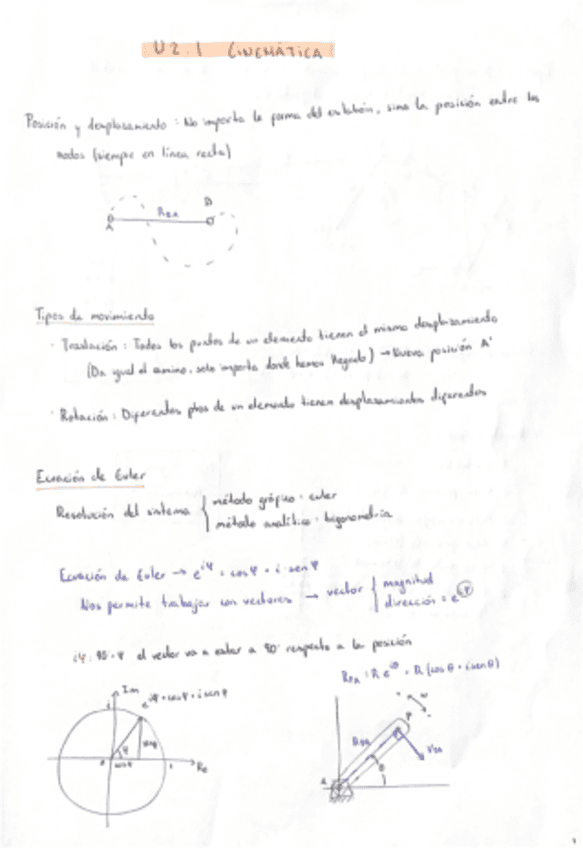 U2.1 CINEMÁTICA
Posición y desplazamiento : No importa la forma del eslabón, sino la posición entre los
nodos (siempre en línea recta)
A
RBA
B
Tipos de movimiento
· Traslación : Todos los puntos de un elemento tienen el mismo desplazamiento
(Da igual el camino, solo importa donde hemos llegado) → Nueva posición A'
· Rotación : Diferentes ptos de un elemento tienen desplazamientos diferentes
Ecuación de Euler
Resolución del sistema { método gráfico · euler
método analítico · trigonometría
Ecuación de Euler → e^iφ = cos φ + i · sen φ
Nos permite trabajar con vectores → vector { magnitud
dirección = e^iφ
iφ : 90 + φ el vector va a estar a 90° respecto a la posición
RPA : R e^iθ = R (cos θ + i sen θ)
Im
e^iφ = cos φ + i sen φ
i
φ
sen φ
cos φ
1
Re
RPA
P
VPA
A
θ
w